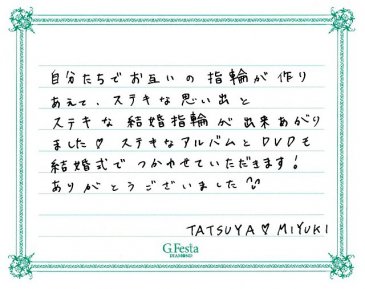 自分たちでお互いの指輪が作り
あえて、ステキな思い出と
ステキな結婚指輪が出来あがり
ました♡ ステキなアルバムとDVDも
結婚式でつかわせていただきます!
ありがとうございました
TATSUYA♡MIYUKI
G.Festa
DIAMOND